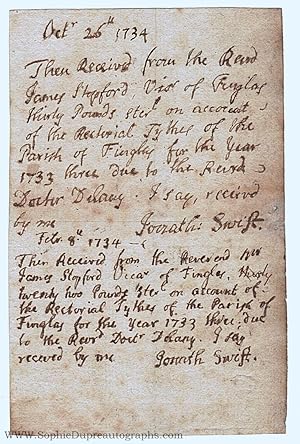 Octr 26th 1734
Then Received from the Revrd
James Stopford Vicr of Finglas
thirty Pounds sterl on account
of the Rectorial Tythes of the
Parish of Finglas for the Year
1733 three due to the Revrd
Doctor Delany. I say, received
by me Jonath: Swift.
Febr. 8th 1734
Then Received from the Reverend Mr
James Stopford Vicar of Finglas,
twenty two Pounds sterl on account of
the Rectorial Tythes of the Parish of
Finglas for the Year 1733 three, due
to the Revrd Doctr Delany. I say
received by me Jonath Swift.
www.SophieDupreautographs.com